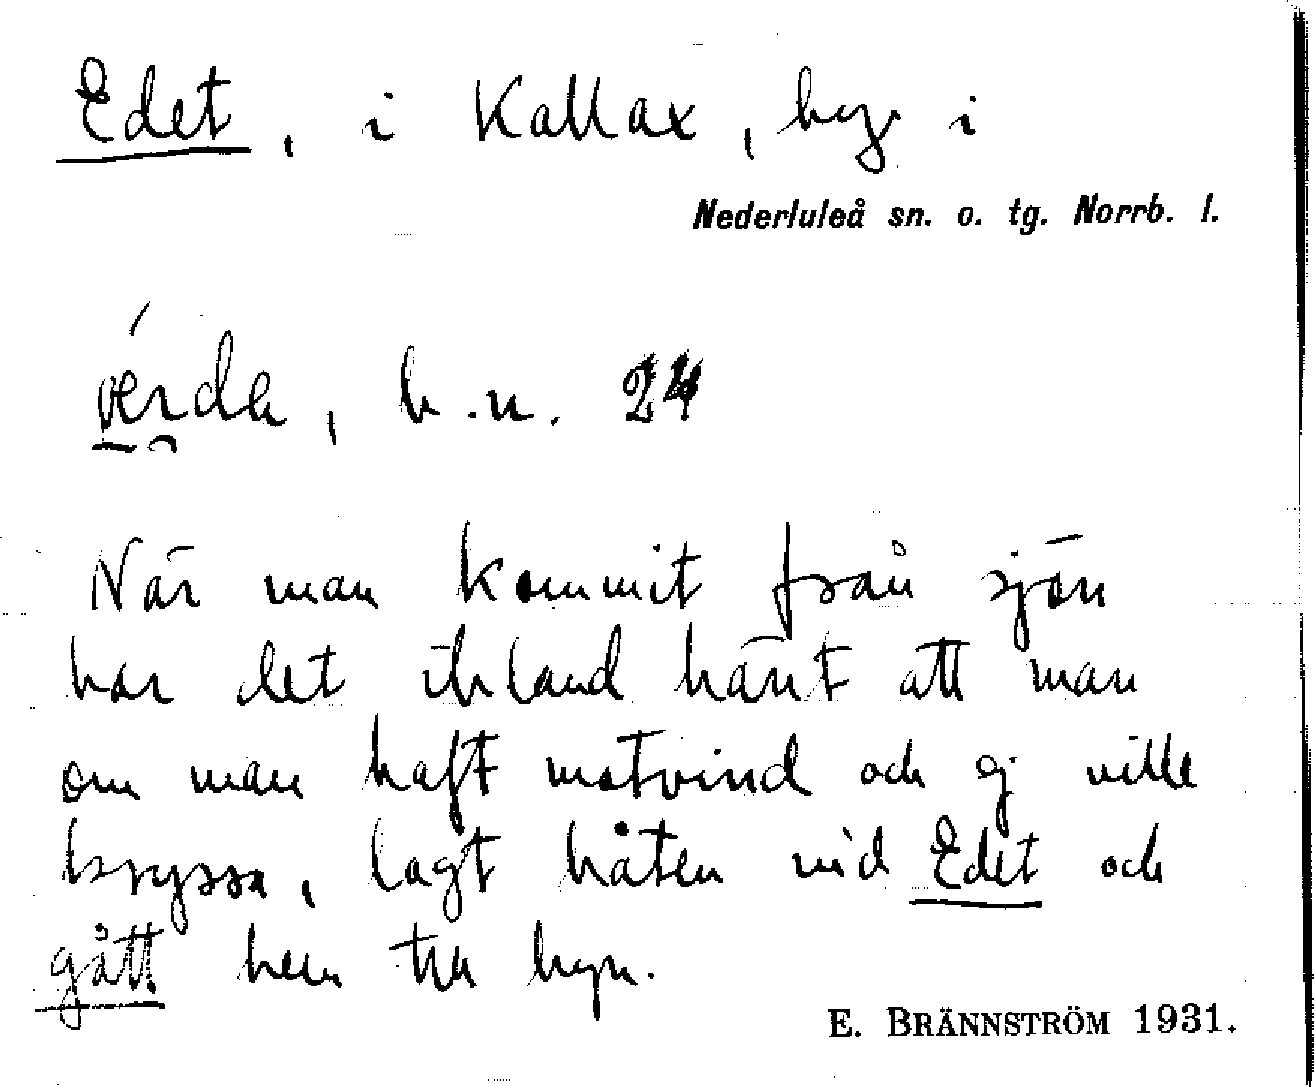 Edet, i Kallax, by i
Nederluleå sn. o. tg. Norrb. l.
b.n. 24
När man kommit från sjön
har det ibland hänt att man
om man haft motvind och ej ville
kryssa, lagt båten vid Edet och
gått hem till byn.
E. BRÄNNSTRÖM 1931.